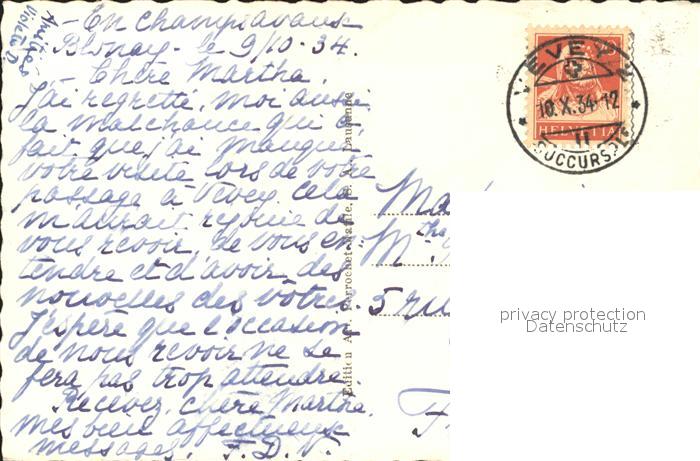 - En Champsavaux
Blonay - le 9/10 - 34.
- Chère Martha.
J'ai regretté, moi aussi
la malchance qui a
fait que j'ai manqué
votre visite lors de votre
passage à Vevey. Cela
m'aurait rejouie de
vous revoir, de vous en
tendre et d'avoir des
nouvelles des vôtres.
J'espère que l'occasion
de nous revoir ne se
fera pas trop attendre.
Recevez, chère Martha,
mes vieux affectueux
messages. F. D. V.
Amitiés
Violette D
Edition Art. Perrochet-Matile, S. A., Lausanne
VEVEY 2
10.X.34-12
II
SUCCURSALE
HELVETIA
Ma
M
5 ru
F
privacy protection
Datenschutz